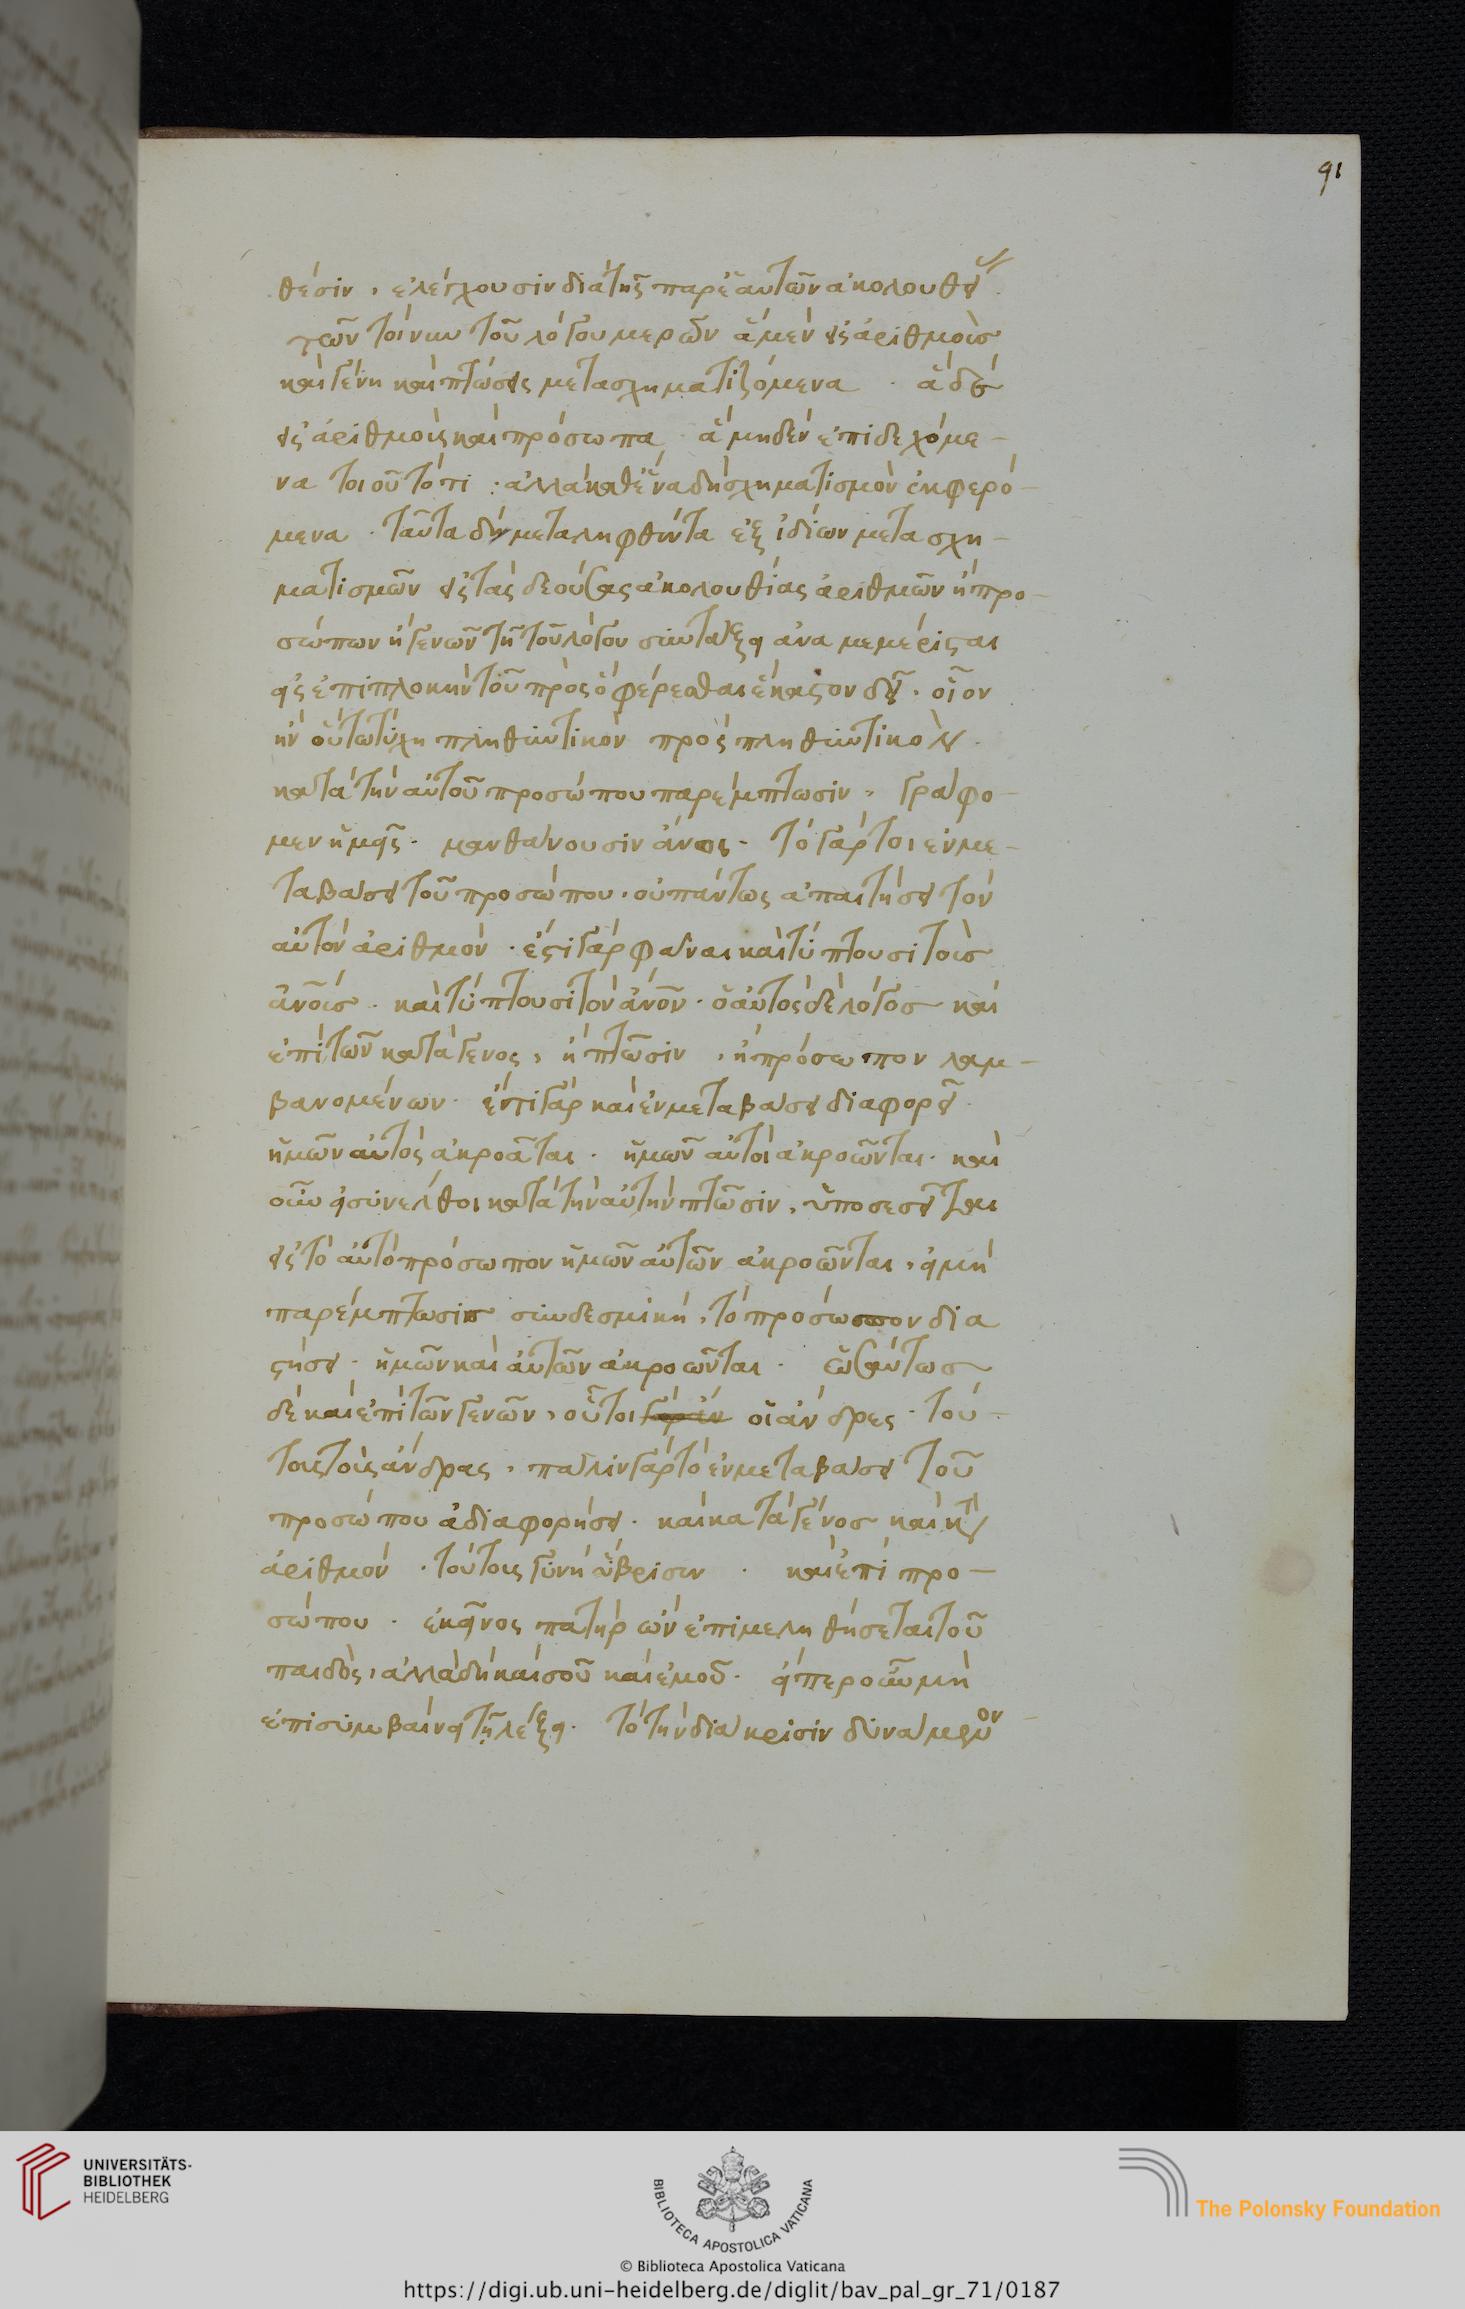 91
θέσιν, ἐλέγχουσιν διὰ τῆς παρ' ἑαυτῶν ἀκολουθ
τῶν τοίνυν τοῦ λόγου μερῶν ἃ μὲν εἰς ἀριθμοὺς
καὶ γένη καὶ πτώσεις μετασχηματιζόμενα · ἃ δὲ
εἰς ἀριθμοὺς καὶ πρόσωπα · ἃ μηδὲν ἐπιδεχόμε-
να τοιοῦτό τι : ἀλλὰ καθ' ἕνα δὴ σχηματισμὸν ἐκφερό-
μενα · ταῦτα δὴ μεταληφθέντα ἐξ ἰδίων μετασχη-
ματισμῶν εἰς τὰς δεούσας ἀκολουθίας ἀριθμῶν ἢ προ-
σώπων ἢ γενῶν τῇ τοῦ λόγου συντάξει ἀναμεμέρισται
εἰς ἐπιπλοκὴν τοῦ πρὸς ὃ φέρεσθαι ἕκαστον δεῖ · οἷον
ἢν οὕτω τύχη πληθυντικὸν πρὸς πληθυντικὸν ·
κατὰ τὴν αὐτοῦ προσώπου παρέμπτωσιν, γράφο-
μεν ἡμεῖς · μανθάνουσιν ἄνοι · τὸ γάρ τοι ἐν με-
ταβάσει τοῦ προσώπου · οὐ πάντως ἀπαιτήσει τὸν
αὐτὸν ἀριθμόν · ἔστι γὰρ φάναι καὶ τύπτουσι τοὺς
ἀνους · καὶ τύπτουσι τὸν ἀνον · ὁ αὐτὸς δὲ λόγος καὶ
ἐπὶ τῶν κατὰ γένος, ἢ πτῶσιν, ἢ πρόσωπον λαμ-
βανομένων · ἔντι γὰρ καὶ ἐν μεταβάσει διαφορεῖ ·
ἡμῶν αὐτὸς ἀκροᾶται · ἡμῶν αὐτοὶ ἀκροῶνται · καὶ
οὖν εἰ συνέλθοι κατὰ τὴν αὐτὴν πτῶσιν, ὑποσεσεῖται
εἰς τὸ αὐτὸ πρόσωπον ἡμῶν αὐτῶν ἀκροῶνται, εἰ μὴ
παρέμπτωσις συνδεσμικὴ, τὸ πρόσωπον δια
στήσει · ἡμῶν καὶ αὐτῶν ἀκροῶνται · ὡσαύτως
δὲ καὶ ἐπὶ τῶν γενῶν, οὗτοι οἱ ἄνδρες · τού-
τους τοὺς ἄνδρας, πάλιν γὰρ τὸ ἐν μεταβάσει τοῦ
προσώπου ἀδιαφορήσει · καὶ κατὰ γένος καὶ κτ
ἀριθμόν · τούτους γυνὴ ὕβρισεν · καὶ ἐπὶ προ-
σώπου · ἐκεῖνος πατὴρ ὢν ἐπιμεληθήσεται τοῦ
παιδὸς, ἀλλὰ δὴ καὶ σοῦ καὶ ἐμοῦ · εἴπερ οὖν μὴ
ἐπισυμβαίνει τῇ λέξει · τὸ τὴν διάκρισιν δυνάμενον
UNIVERSITÄTS-
BIBLIOTHEK
HEIDELBERG
BIBLIOTECA APOSTOLICA VATICANA
The Polonsky Foundation
© Biblioteca Apostolica Vaticana
https://digi.ub.uni-heidelberg.de/diglit/bav_pal_gr_71/0187